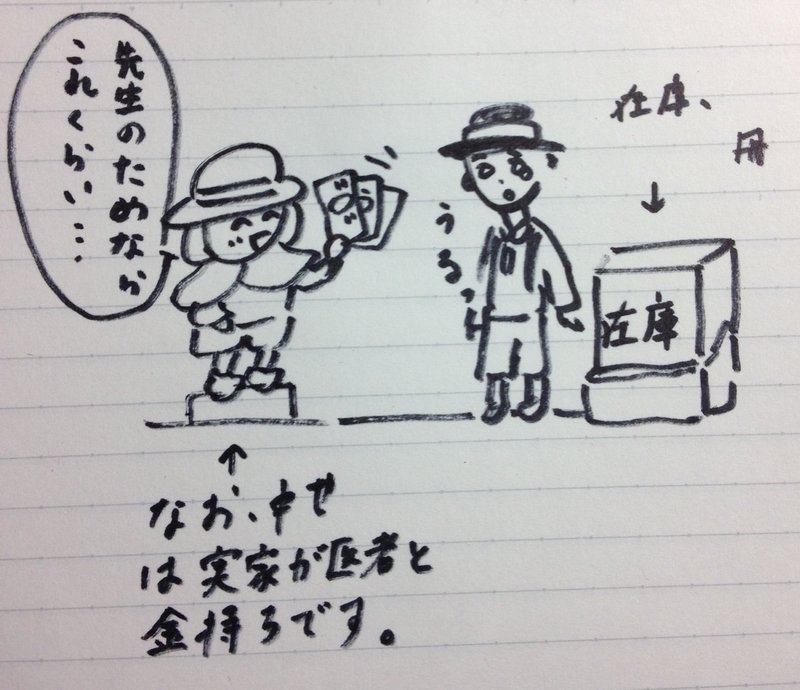 先生のためなら
これくらい…
うるっ
在庫、
冊
↓
在庫
↑
なお、
は実家が医者と
金持ちです。